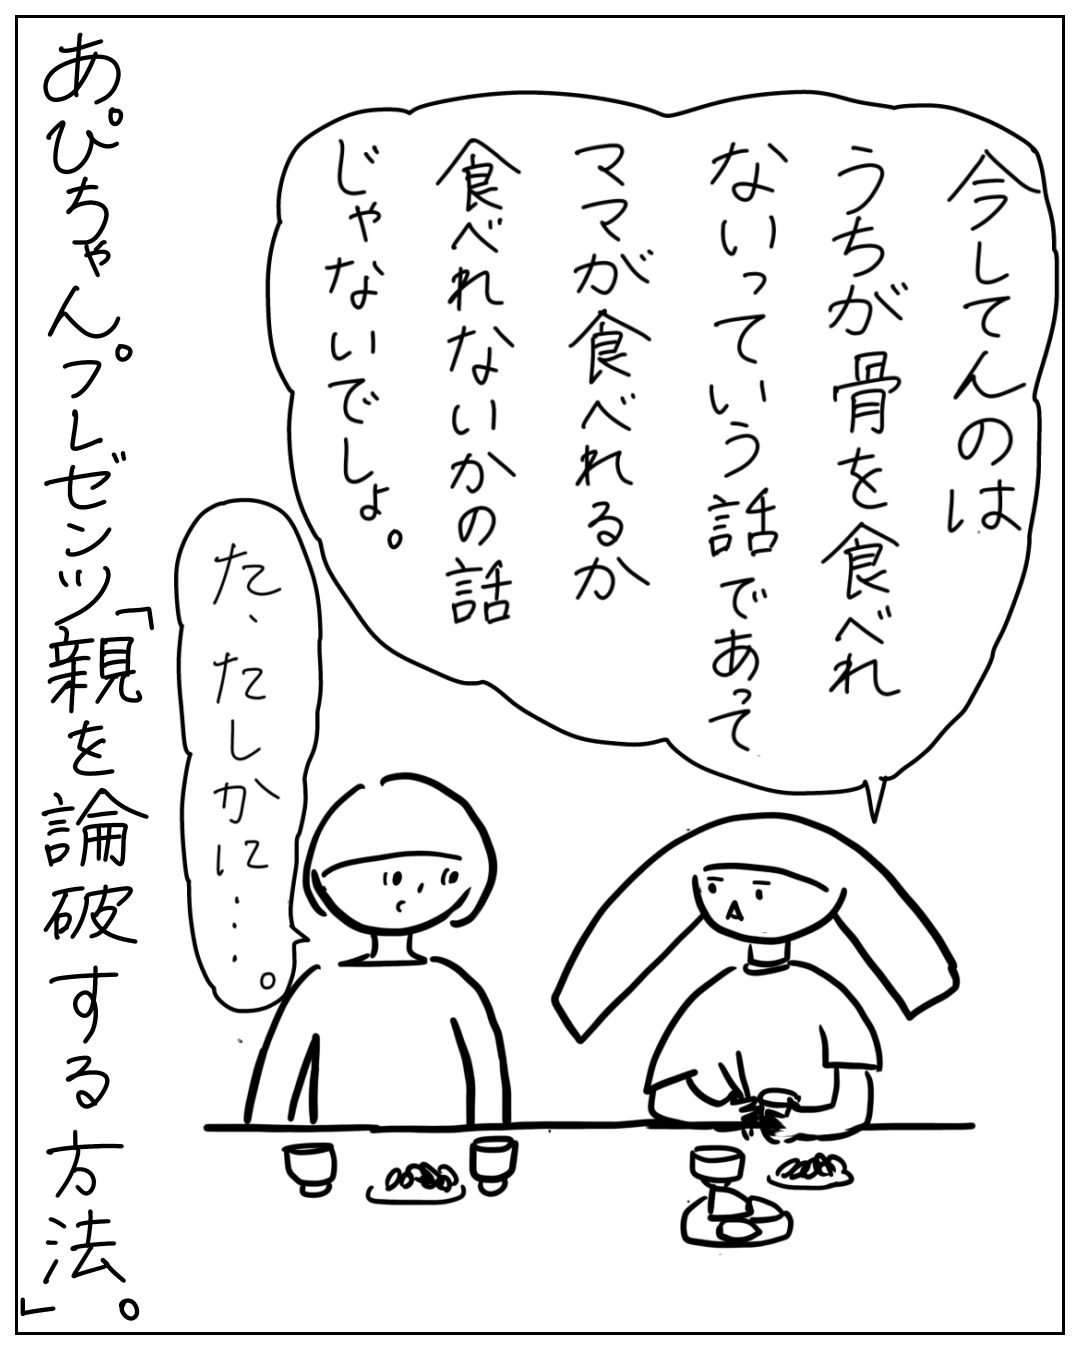 今してんのは
うちが骨を食べれ
ないっていう話であって
ママが食べれるか
食べれないかの話
じゃないでしょ。
た、たしかに…。
あぴちゃんプレゼンツ「親を論破する方法。」